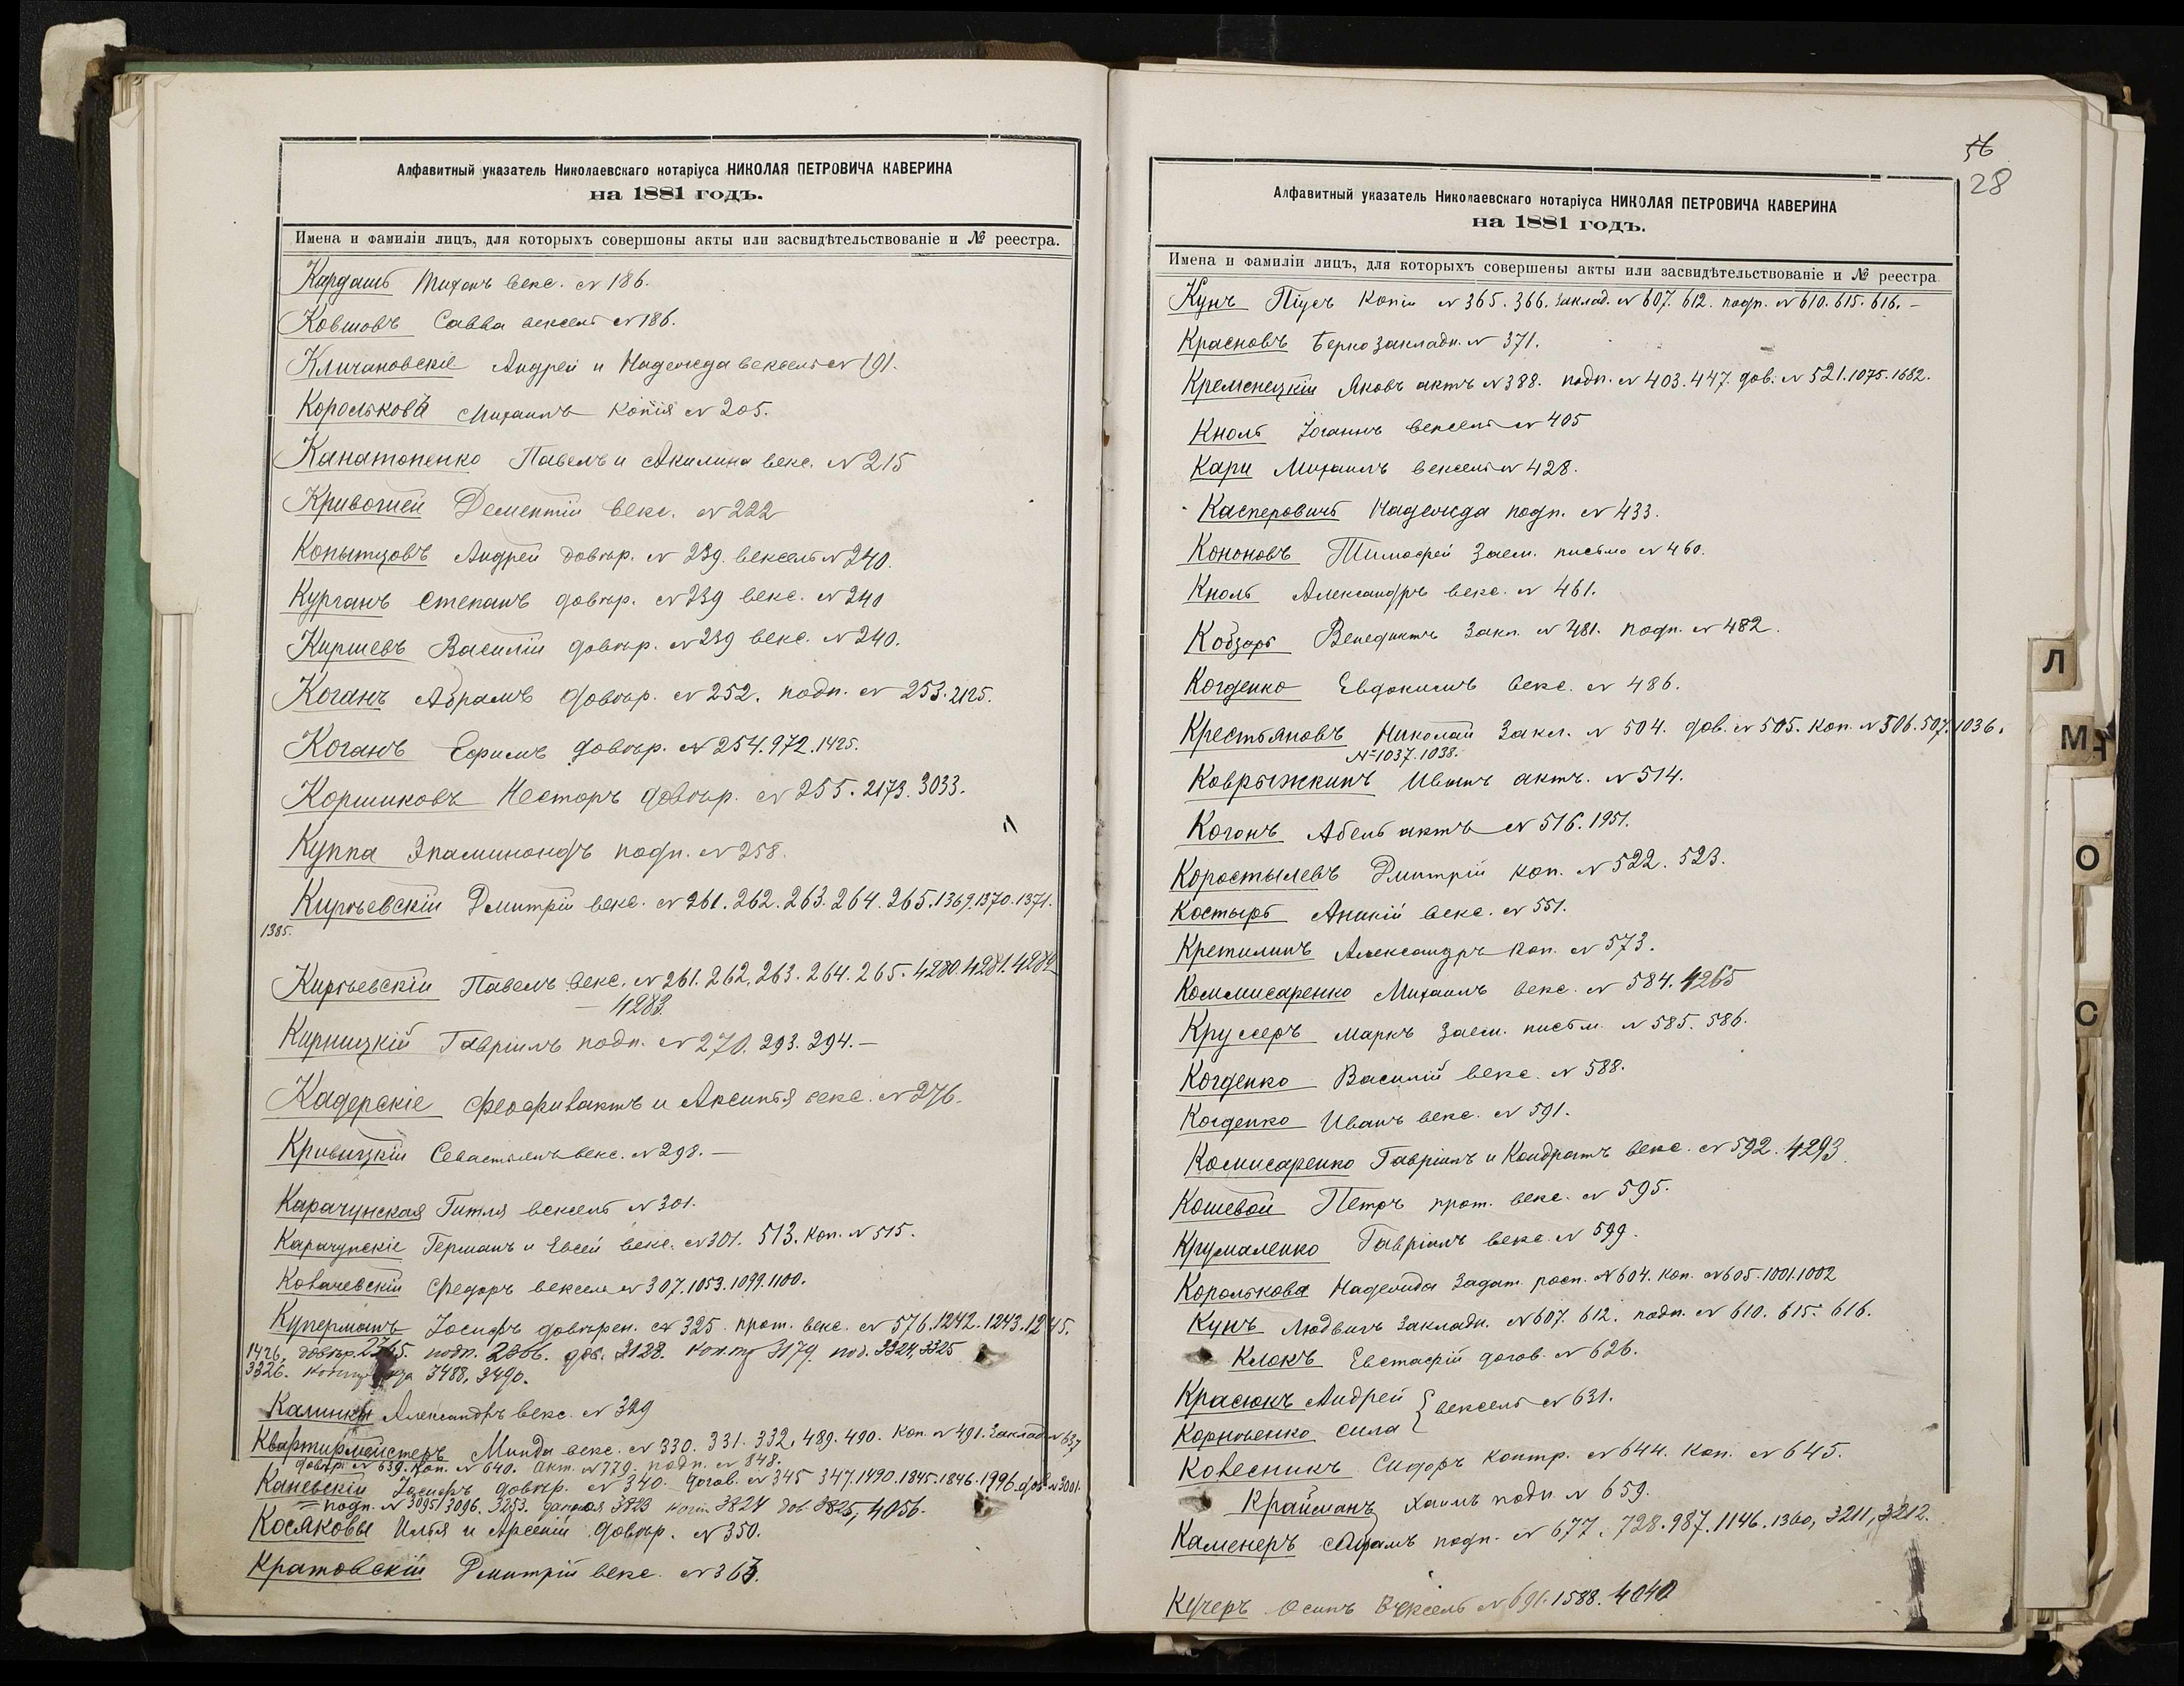 Алфавитный указатель Николаевскаго нотаріуса НИКОЛАЯ ПЕТРОВИЧА КАВЕРИНА
на 1881 годъ.
Имена и фамиліи лицъ, для которыхъ совершоны акты или засвидѣтельствованіе и № реестра.
Кардашъ Тихонъ векс. № 186.
Ковшовъ Савва вексель № 186.
Кличановскіе Андрей и Надежда вексель № 191.
Корольковъ Михаилъ копія № 205.
Канатопенко Павелъ и Акилина векс. № 215
Кривошеи Дементій векс. № 222
Копытцовъ Андрей довѣр. № 239. вексель № 240.
Курганъ Степанъ довѣр. № 239 векс. № 240
Киршевъ Василій довѣр. № 239 векс. № 240.
Коганъ Абрамъ довѣр. № 252. подп. № 253. 2125.
Коганъ Ефимъ довѣр. № 254. 972. 1425.
Коршиковъ Несторъ довѣр. № 255. 2173. 3033.
Куппа Эпаминондъ подп. № 258.
Кирьевскій Дмитрій векс. № 261. 262. 263. 264. 265. 1369. 1370. 1371.
1385.
Кирьевскій Павелъ векс. № 261. 262. 263. 264. 265. 4280. 4281. 4282
4283.
Кирницкій Гавріилъ подп. № 270. 293. 294. —
Кадерскіе Феофилактъ и Аксинья векс. № 276.
Кривицкій Севастьянъ векс. № 298. —
Карачунская Гитля вексель № 301.
Карачунскіе Германъ и Евсей векс. № 301. 513. Коп. № 515.
Ковачевскій Федоръ вексель № 307. 1053. 1099. 1100.
Куперманъ Іосифъ довѣрен. № 325. прот. векс. № 576. 1242. 1243. 1245.
1426. довѣр. 2365. подп. 2366. дов. 3128. 3179. под. 3324, 3325
3326. 3488, 3490.
Калинки Александръ векс. № 329
Квартирмейстеръ Минда векс. № 330. 331. 332. 489. 490. Коп. № 491. Заклад № 637
довѣр. № 639. Коп. № 640. акт. № 779. подп. № 848.
Каневскій Іосифъ довѣр. № 340. догов. № 345 347. 1490. 1845. 1846. 1996. дов. № 3001.
подп. № 3095. 3096. 3253. данная 3823 копі 3824 дов. 3825, 4056.
Косяковы Илья и Арсеній довѣр. № 350.
Кратовскій Дмитрій векс. № 363.
56
28
Алфавитный указатель Николаевскаго нотаріуса НИКОЛАЯ ПЕТРОВИЧА КАВЕРИНА
на 1881 годъ.
Имена и фамиліи лицъ, для которыхъ совершены акты или засвидѣтельствованіе и № реестра.
Кунъ Піусъ копіи № 365. 366. Заклад. № 607. 612. подп. № 610. 615. 616. —
Красновъ Берко Закладн. № 371.
Кременецкій Яковъ актъ № 388. подп. № 403. 447. дов. № 521. 1075. 1682.
Кноль Іоганнъ вексель № 405
Кари Михаилъ вексель № 428.
Касперовичъ Надежда подп. № 433.
Кононовъ Тимофей Заем. письмо № 460.
Кноль Александръ векс. № 461.
Кобзарь Венедиктъ Закл. № 481. подп. № 482.
Когденко Евдокимъ векс. № 486.
Крестьяновъ Николай Закл. № 504. дов. № 505. Коп. № 506. 507. 1036.
№ 1037. 1038.
Коврыжкинъ Иванъ актъ. № 514.
Коганъ Абель актъ № 516. 1951.
Коростылевъ Дмитрій коп. № 522. 523.
Костырь Ананій векс. № 551.
Кретининъ Александръ Коп. № 573.
Коммисаренко Михаилъ векс. № 584. 4265
Круссеръ Маркъ Заем. письм. № 585. 586.
Когденко Василій векс. № 588.
Когденко Иванъ векс. № 591.
Комисаренко Гавріилъ и Кондратъ векс. № 592. 4293
Кошевой Петръ прот. векс. № 595.
Крумаленко Гавріилъ векс. № 599.
Королькова Надежда Задат. росп. № 604. Коп. № 605. 1001. 1002
Кунъ Людвигъ Закладн. № 607. 612. подп. № 610. 615. 616.
Клокъ Евстафій догов. № 626.
Красюкъ Андрей } вексель № 631.
Корніенко Сила
Ковесникъ Сидоръ контр. № 644. Коп. № 645.
Крайсманъ Хаимъ подп. № 659.
Каменеръ Абрамъ подп. № 677. 728. 987. 1146. 1360, 3211, 3212.
Кучеръ Осипъ Вексель № 691. 1588. 4040
Л
М
О
С